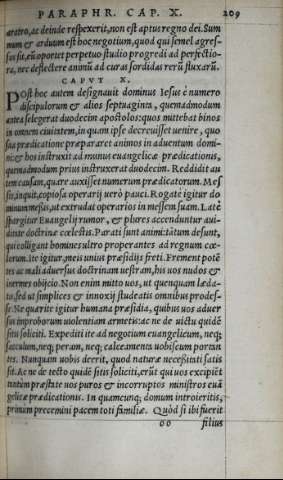 PARAPHR. CAP. X. 209
aratro, ac deinde respexerit, non est aptus regno dei. Sum
mum & arduum est hoc negotium, quod qui semel agres-
sus sit, eũ oportet perpetuo studio progredi ad perfectio-
ra, nec deflectere animũ ad curas sordidas rerũ fluxarũ.
CAPVT X.
Post hoc autem designauit dominus Iesus è numero
discipulorum & alios septuaginta, quemadmodum
antea selegerat duodecim apostolos: quos mittebat binos
in omnem ciuitatem, in quam ipse decreuisset uenire, quo
sua prædicatione præpararet animos in aduentum domi-
ni: & hos instruxit ad munus euangelicæ prædicationis,
quemadmodum prius instruxerat duodecim. Reddidit au
tem causam, quare auxisset numerum prædicatorum. Mes
sis, inquit, copiosa operarij uerò pauci. Rogate igitur do
minum messis, ut extrudat operarios in messem suam. Latè
spargitur Euangelij rumor, & plures accenduntur aui-
ditate doctrinæ cœlestis. Parati sunt animi: tãtum desunt,
qui colligant homines ultro properantes ad regnum cœ-
lorum. Ite igitur, meis unius præsidijs freti. Frement potẽ
tes ac mali aduersus doctrinam uestram, his uos nudos &
inermes obijcio. Non enim mitto uos, ut quenquam læda-
tis, sed ut simplices & innoxij studeatis omnibus prodes-
se. Ne quærite igitur humana præsidia, quibus uos aduer
sus improborum uiolentiam armetis: ac ne de uictu quidẽ
sitis soliciti. Expediti ite ad negotium euangelicum, neq;
sacculum, neq; peram, neq; calceamenta uobiscum portan
tes. Nunquam uobis deerit, quod naturæ necessitati satis
sit. Ac ne de tecto quidẽ sitis soliciti, erũt qui uos excipiẽt
tantùm præstate uos puros & incorruptos ministros euã
gelicæ prædicationis. In quamcunq; domum introieritis,
primùm precemini pacem toti familiæ. Quòd si ibi fuerit
oo filius